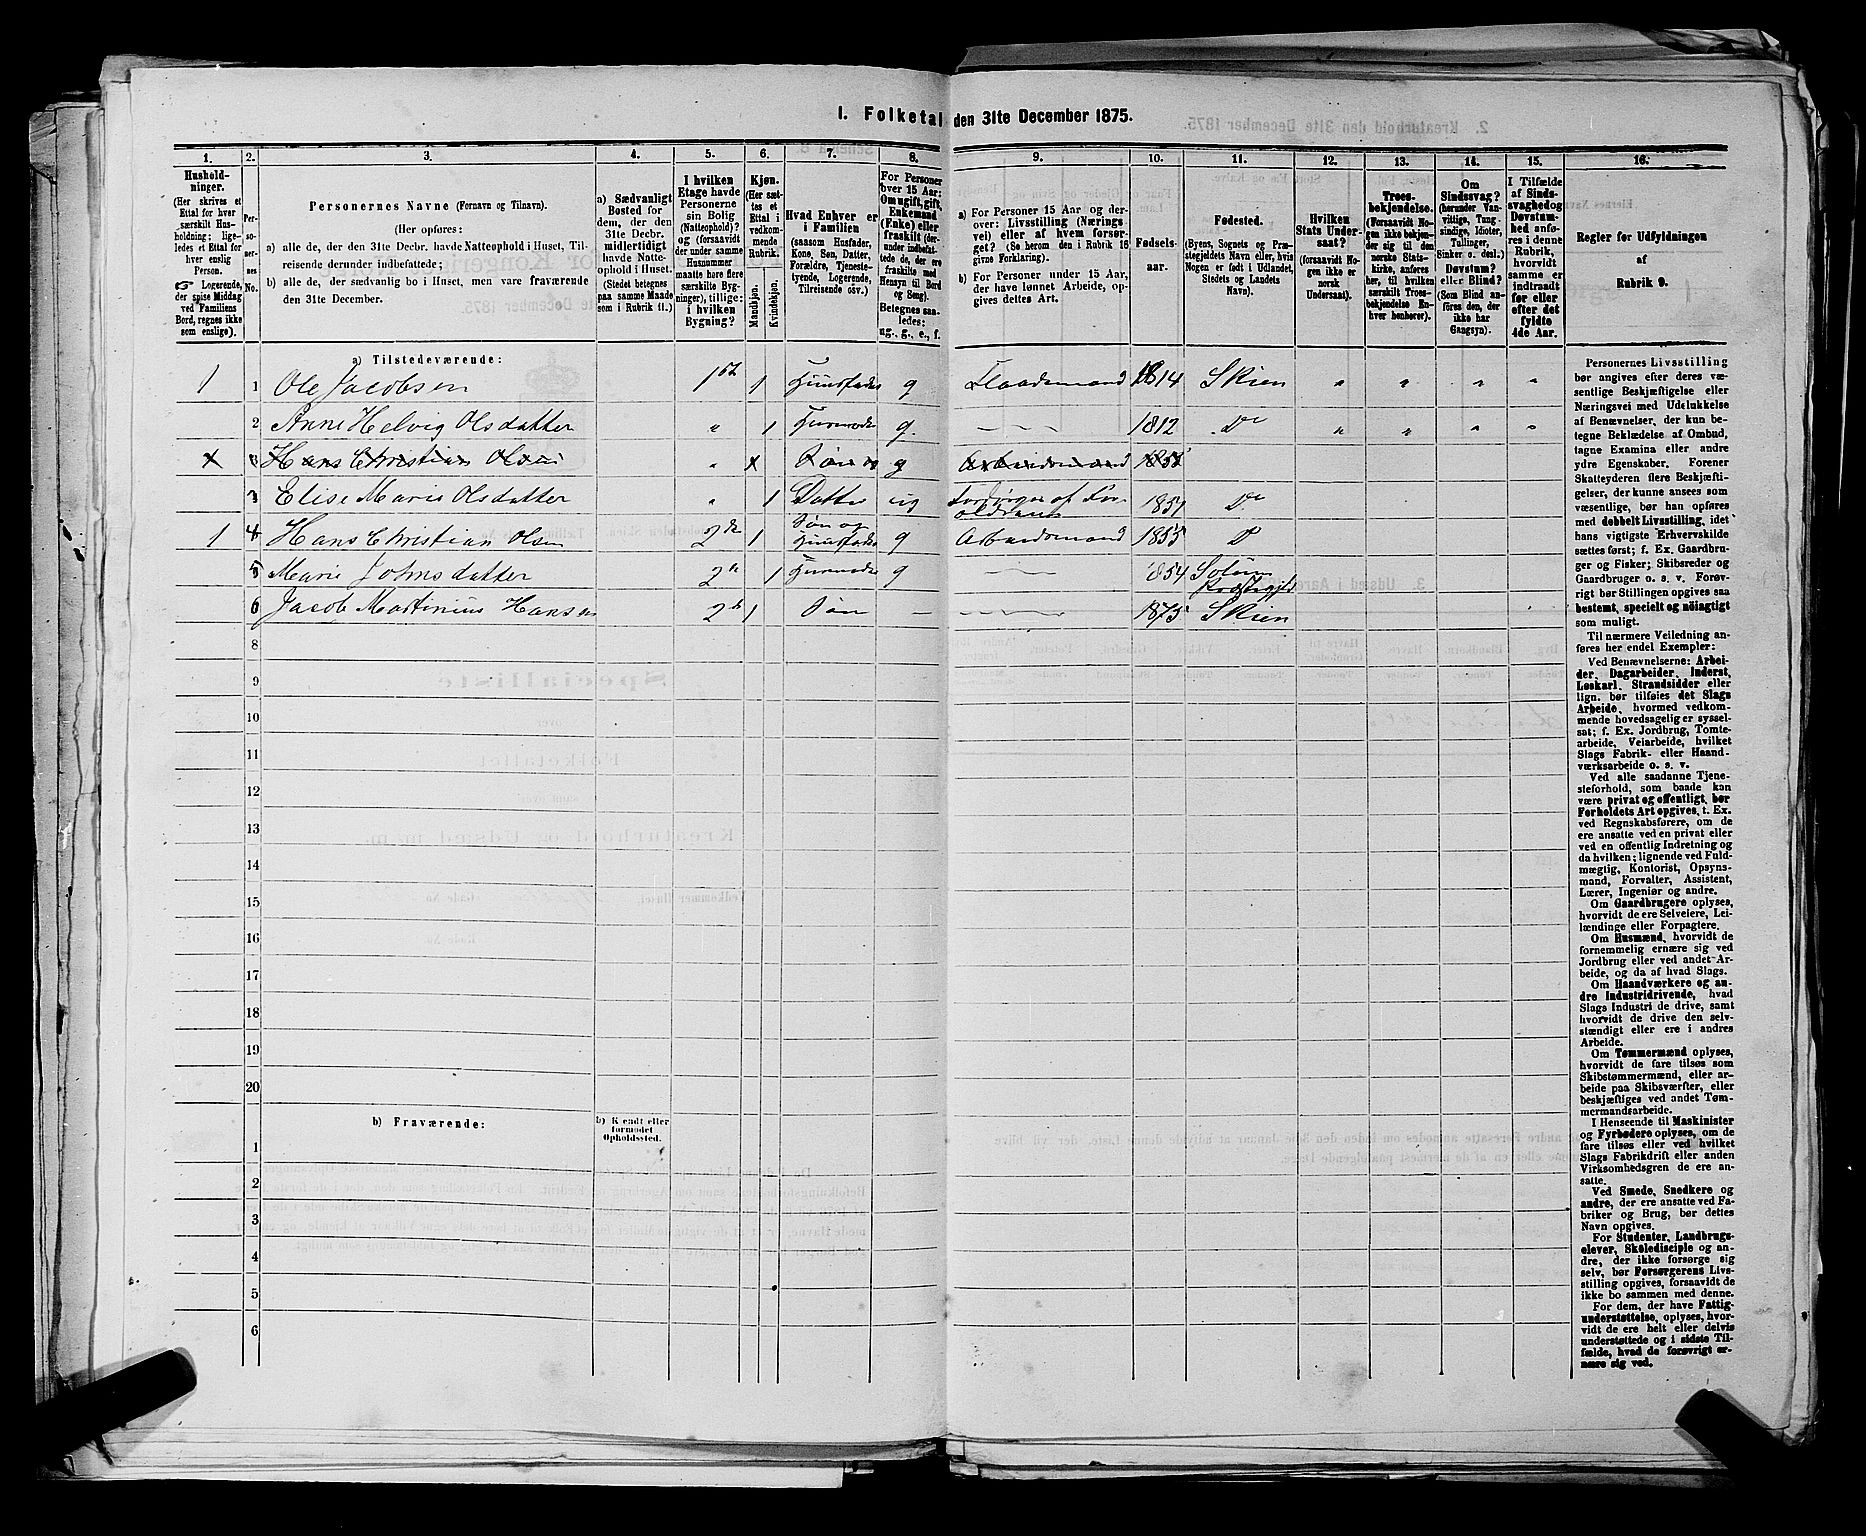 I. Folketal den 31te December 1875.
1. 2. 3. 4. 5. 6. 7. 8. 9. 10. 11. 12. 13. 14. 15. 16.
Hushold-
ninger.
(Her skrives et
Ettal for hver
særskilt Hus-
holdning; lige-
ledes et Ettal for
hver enslig
Person.
Logerende,
der spise Middag
ved Familiens
Bord, regnes ikke
som enslige).
Per-
so-
ner-
nes
No.
Personernes Navne (Fornavn og Tilnavn).
(Her opføres:
a) alle de, der den 31te Decbr. havde Natteophold i Huset, Til-
reisende derunder indbefattede;
b) alle de, der sædvanlig bo i Huset, men vare fraværende
den 31te December.
a) Sædvanligt
Bosted for
dem, der den
31te Decbr.
midlertidigt
havde Natte-
ophold i Huset.
(Stedet betegnes
paa samme Maade
som i Rubrik 11.)
I hvilken
Etage havde
Personerne
sin Bolig
(Natteophold)?
og (forsaavidt
der under samme
Husnummer
maatte høre flere
særskilte Byg-
ninger), tillige:
i hvilken
Bygning?
Kjøn.
(Her sæt-
tes et
Ettal i
vedkom-
mende
Rubrik.
Mandkjøn.
Kvindekjøn.
Hvad Enhver er
i Familien
(saasom Husfader,
Kone, Søn, Datter,
Forældre, Tjeneste-
tyende, Logerende,
Tilreisende osv.)
For Personer
over 15 Aar:
Om ugift, gift,
Enkemand
(Enke) eller
fraskilt (der-
under indbefat-
tede de, der ere
fraskilte med
Hensyn til Bord
og Seng).
Betegnes saa-
ledes:
ug., g., e., f.
a) For Personer 15 Aar og der-
over: Livsstilling (Nærings-
vei) eller af hvem forsør-
get? (Se herom den i Rubrik 16
givne Forklaring).
b) For Personer under 15 Aar,
der have lønnet Arbeide, op-
gives dettes Art.
Fødsels-
aar.
Fødested.
(Byens, Sognets og Præ-
stegjeldets Navn eller, hvis
Nogen er født i Udlandet,
Stedets og Landets
Navn).
Hvilken
Stats Under-
saat?
(forsaavidt No-
gen ikke er
norsk
Undersaat).
Troes-
bekjendelse.
(Forsaavidt No-
gen ikke bekjen-
der sig til den
norske Stats-
kirke, anføres
her, til hvilken
særskilt Troes-
bekjendelse En-
hver henhører).
Om
Sindssvag?
(herunder Van-
vittige, Tung-
sindige, Idioter,
Tullinger,
Sinker o. desl.)
Døvstum?
eller Blind?
(Som Blind an-
føres den, der
ikke har
Gangsyn).
I Tilfælde
af Sinds-
svaghed og
Døvstum-
hed anfø-
res i denne
Rubrik,
hvorvidt
samme er
indtraadt
før eller
efter det
fyldte
4de Aar.
Regler for Udfyldningen
af
Rubrik 9.
a) Tilstedeværende:
1 1 Ole Jacobsen 1st 1 Huusfader g Flaademand 1814 Skien " " " "
2 Anne Helvig Olsdatter " 1 Husmoder g. 1812 Do " " " "
x 3 Hans Christian Olsen " x Søn og g Arbeidsmand 1855
3 Elise Marie Olsdatter " 1 Datter ug Forsørges af For-
ældrene 1851 Do
1 4 Hans Christian Olsen 2den 1 Søn og
Huusfader g Arbeidsmand 1855 D
5 Marie Johnsdatter 2n 1 Husmoder g 1854 Solum
Præstegjeld
6 Jacob Martinius Hansen 2d 1 Søn — 1875 Skien
8
9
10
11
12
13
14
15
16
17
18
19
20
b) Fraværende:
b) Kjendt eller
formodet
Opholdssted.
1
2
3
4
5
6
Personernes Livsstilling
bør angives efter deres væ-
sentlige Beskjæftigelse eller
Næringsvei med Udelukkelse
af Benævnelser, der kun be-
tegne Beklædelse af Ombud,
tagne Examina eller andre
ydre Egenskaber. Forener
Skatteyderen flere Beskjæfti-
gelser, der kunne ansees som
væsentlige, bør han opføres
med dobbelt Livsstilling, idet
hans vigtigste Erhvervskilde
sættes først; f. Ex. Gaardbru-
ger og Fisker; Skibsreder og
Gaardbruger o. s. v. Forøv-
rigt bør Stillingen opgives saa
bestemt, specielt og nöiagtigt
som muligt.
Til nærmere Veiledning an-
føres her endel Exempler:
Ved Benævnelserne: Arbei-
der, Dagarbeider, Inderst,
Løskarl, Strandsidder eller
lign. bør tilføies det Slags
Arbeide, hvormed vedkom-
mende hovedsagelig er syssel-
sat; f. Ex. Jordbrug, Tomte-
arbeide, Veiarbeide, hvilket
Slags Fabrik- eller Haand-
værksarbeide o. s. v.
Ved alle saadanne Tjene-
steforhold, som baade kan
være privat og offentligt, bør
Forholdets Art opgives, t. Ex.
ved Regnskabsførere, om de
ere ansatte ved en privat eller
ved en offentlig Indretning og
da hvilken; lignende ved Fuld-
mægtig, Kontorist, Opsyns-
mand, Forvalter, Assistent,
Lærer, Ingeniør og andre.
Om Gaardbrugere oplyses,
hvorvidt de ere Selveiere, Lei-
lændinge eller Forpagtere.
Om Husmænd, hvorvidt de
fornemmelig ernære sig ved
Jordbrug eller ved andet Ar-
beide, og da af hvad Slags.
Om Haandværkere og an-
dre Industridrivende, hvad
Slags Industri de drive, samt
hvorvidt de drive den selv-
stændigt eller ere i andres
Arbeide.
Om Tømmermænd oplyses,
hvorvidt de fare tilsøs som
Skibstømmermænd, eller ar-
beide paa Skibsværfter, eller
beskjæftiges ved andet Tøm-
mermandsarbeide.
I Henseende til Maskinister
og Fyrbødere oplyses, om de
fare tilsøs eller ved hvilket
Slags Fabrikdrift eller anden
Virksomhedsgren de ere an-
satte.
Ved Smede, Snedkere og
andre, der ere ansatte ved Fa-
briker og Brug, bør dettes
Navn opgives.
For Studenter, Landbrugs-
elever, Skoledisciple og an-
dre, der ikke forsørge sig
selv, bør Forsørgerens Livs-
stilling opgives, forsaavidt de
ikke bo sammen med denne.
For dem, der have Fattig-
understøttelse, oplyses, hvor-
vidt de ere helt eller delvis
understøttede og i sidste Til-
fælde, hvad de forøvrigt er-
nære sig ved.